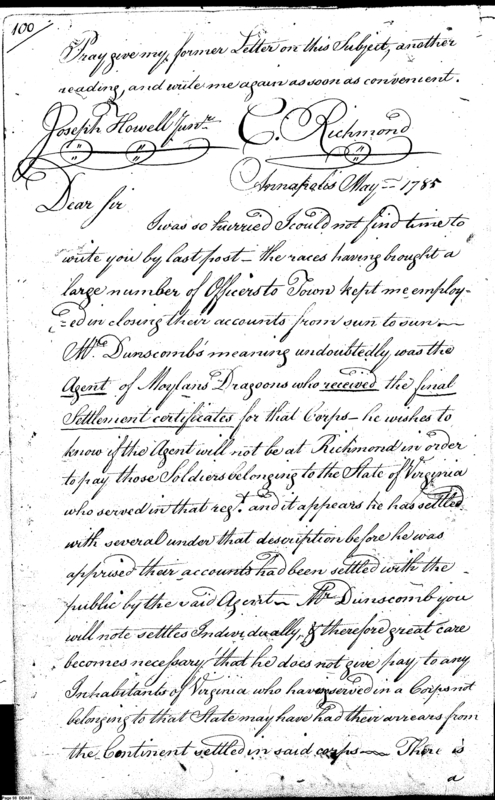 100
Pray give my former Letter on this Subject, another
reading, and write me again as soon as convenient.
Joseph Howell Junr. C. Richmond
Annapolis May — 1785
Dear Sir
I was so hurried I could not find time to
write you by last post — the races having brought a
large number of Officers to Town kept me employ-
=ed in closing their accounts from sun to sun —
Mr. Dunscomb's meaning undoubtedly was the
Agent of Moylans Dragoons who received the final
Settlement certificates for that Corps — he wishes to
know if the Agent will not be at Richmond in order
to pay those Soldiers belonging to the State of Virginia
who served in that regt. and it appears he has settled
with several under that description before he was
apprised their accounts had been settled with the
public by the said Agent — Mr Dunscomb you
will note settles Individually, & therefore great care
becomes necessary that he does not give pay to any
Inhabitants of Virginia who having served in a Corps not
belonging to that State may have had their arrears from
the Continent settled in said corps — There is
a
Page 55 DDA01